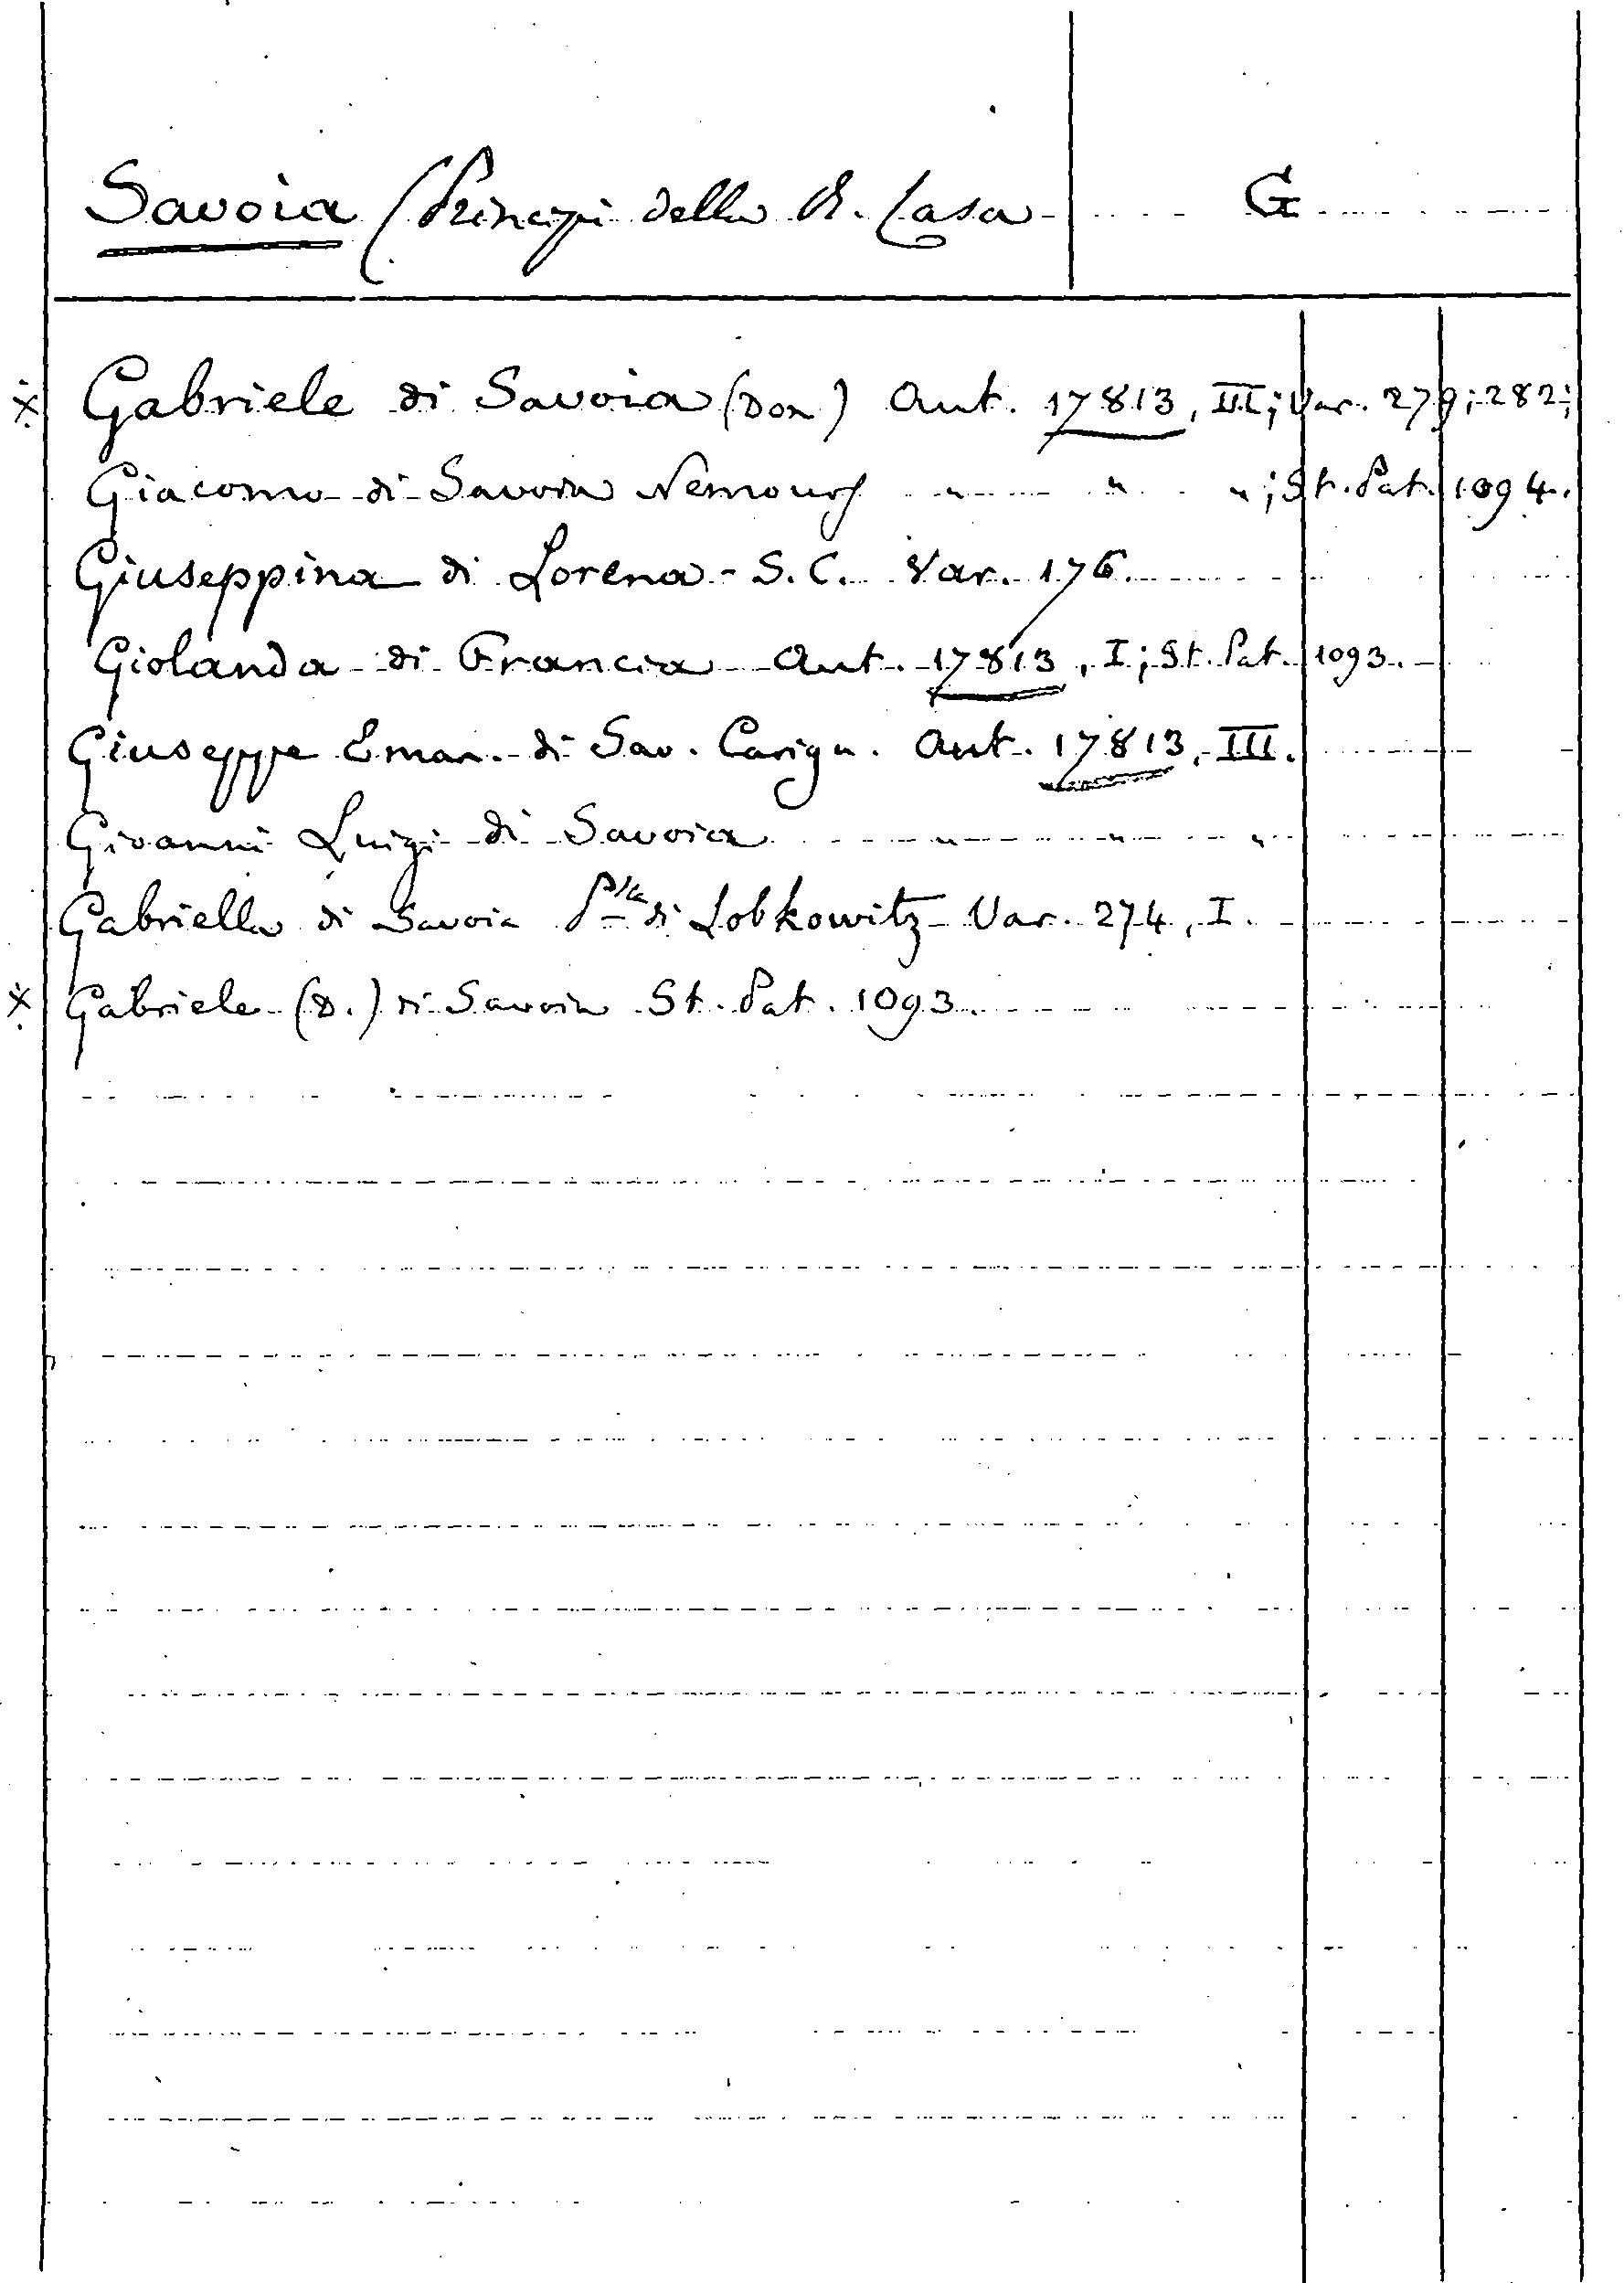 Savoia (Principi della R. Casa G
※ Gabriele di Savoia (Don) Aut. 17813, III; Var. 279; 282;
Giacomo di Savoia Nemours " " "; St. Pat. 1094.
Giuseppina di Lorena - S. C. Var. 176.
Giolanda di Francia Aut. 17813, I; St. Pat. 1093.
Giuseppe Eman. di Sav. Carign. Aut. 17813, III.
Giovanni Luigi di Savoia " " "
Gabriella di Savoia P.ssa di Lobkowitz Var. 274, I.
※ Gabriele (D.) di Savoia St. Pat. 1093.